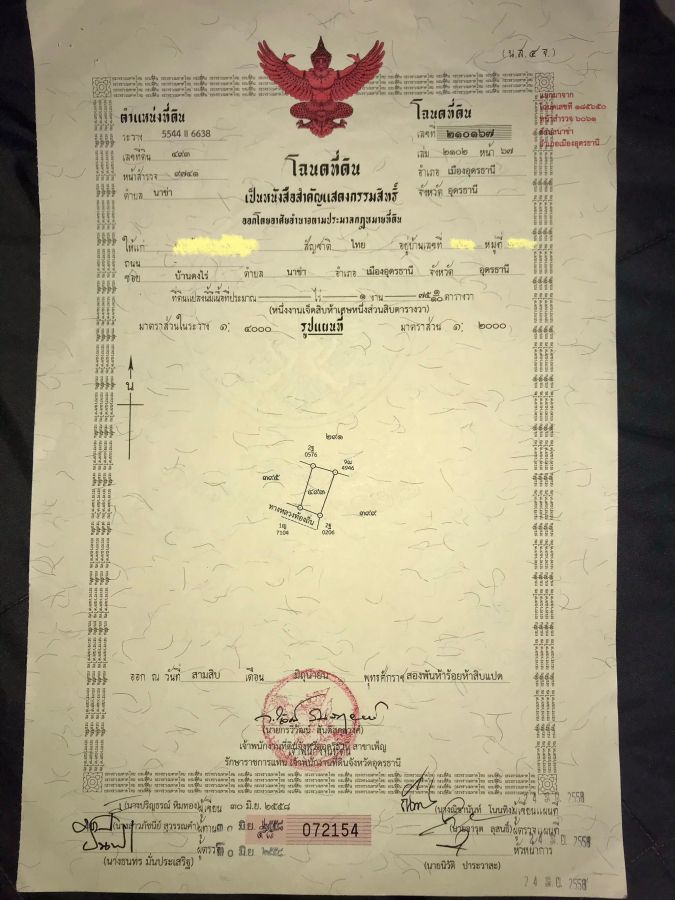 (น.ส.๔ จ.)
ตำแหน่งที่ดิน
ระวาง 5544 II 6638
เลขที่ดิน ๔๙๓
หน้าสำรวจ ๙๗๔๑
ตำบล นาข่า
โฉนดที่ดิน
เลขที่ ๒๑๐๑๖๗
เล่ม ๒๑๐๒ หน้า ๖๗
อำเภอ เมืองอุดรธานี
จังหวัด อุดรธานี
แยกมาจาก
โฉนดเลขที่ ๑๘๕๖๕๐
หน้าสำรวจ ๖๐๖๑
ตำบลนาข่า
อำเภอเมืองอุดรธานี
โฉนดที่ดิน
เป็นหนังสือสำคัญแสดงกรรมสิทธิ์
ออกโดยอาศัยอำนาจตามประมวลกฎหมายที่ดิน
ให้แก่ สัญชาติ ไทย อยู่บ้านเลขที่ หมู่ที่
ถนน
ซอย บ้านดงไร่ ตำบล นาข่า อำเภอ เมืองอุดรธานี จังหวัด อุดรธานี
ที่ดินแปลงนี้มีเนื้อที่ประมาณ ไร่ ๑ งาน ๗๕ ๑/๑๐ ตารางวา
(หนึ่งงานเจ็ดสิบห้าเศษหนึ่งส่วนสิบตารางวา)
มาตราส่วนในระวาง ๑: ๔๐๐๐ รูปแผนที่ มาตราส่วน ๑: ๒๐๐๐
น
๒๙๑
2ฐ
0576
9ฌ
4946
๓๙๕
๔๙๓
๓๙๙
ทางหลวงท้องถิ่น
1ญ
7104
2ฐ
0206
ออก ณ วันที่ สามสิบ เดือน มิถุนายน พุทธศักราช สองพันห้าร้อยห้าสิบแปด
เจ้าพนักงานที่ดินจังหวัดอุดรธานี สาขาเพ็ญ
รักษาราชการแทน เจ้าพนักงานที่ดินจังหวัดอุดรธานี
ผู้เขียน ๓๐ มิ.ย. ๒๕๕๘
ผู้เขียนแผนที่
ผู้ทาน ๓๐ มิ.ย. ๒๕๕๘
072154
ผู้ตรวจแผนที่
ผู้ตรวจ ๓๐ มิ.ย. ๒๕๕๘
หัวหน้าการ
(นางธนทร มั่นประเสริฐ)
(นายนิวัติ ปาระวาละ)
24 มิ.ย. 2558